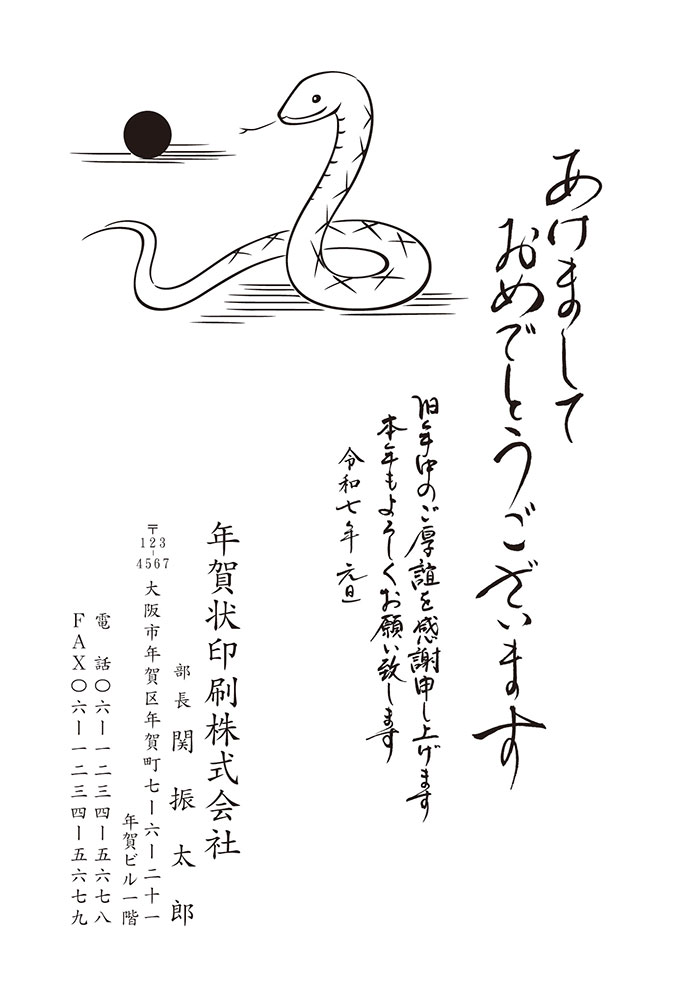 あけまして
おめでとうございます
旧年中のご厚誼を感謝申し上げます
本年もよろしくお願い致します
令和七年 元旦
年賀状印刷株式会社
部長 関振太郎
〒123-4567 大阪市年賀区年賀町七ー六ー二十一
年賀ビル一階
電話〇六ー一二三四ー五六七八
FAX〇六ー一二三四ー五六七九